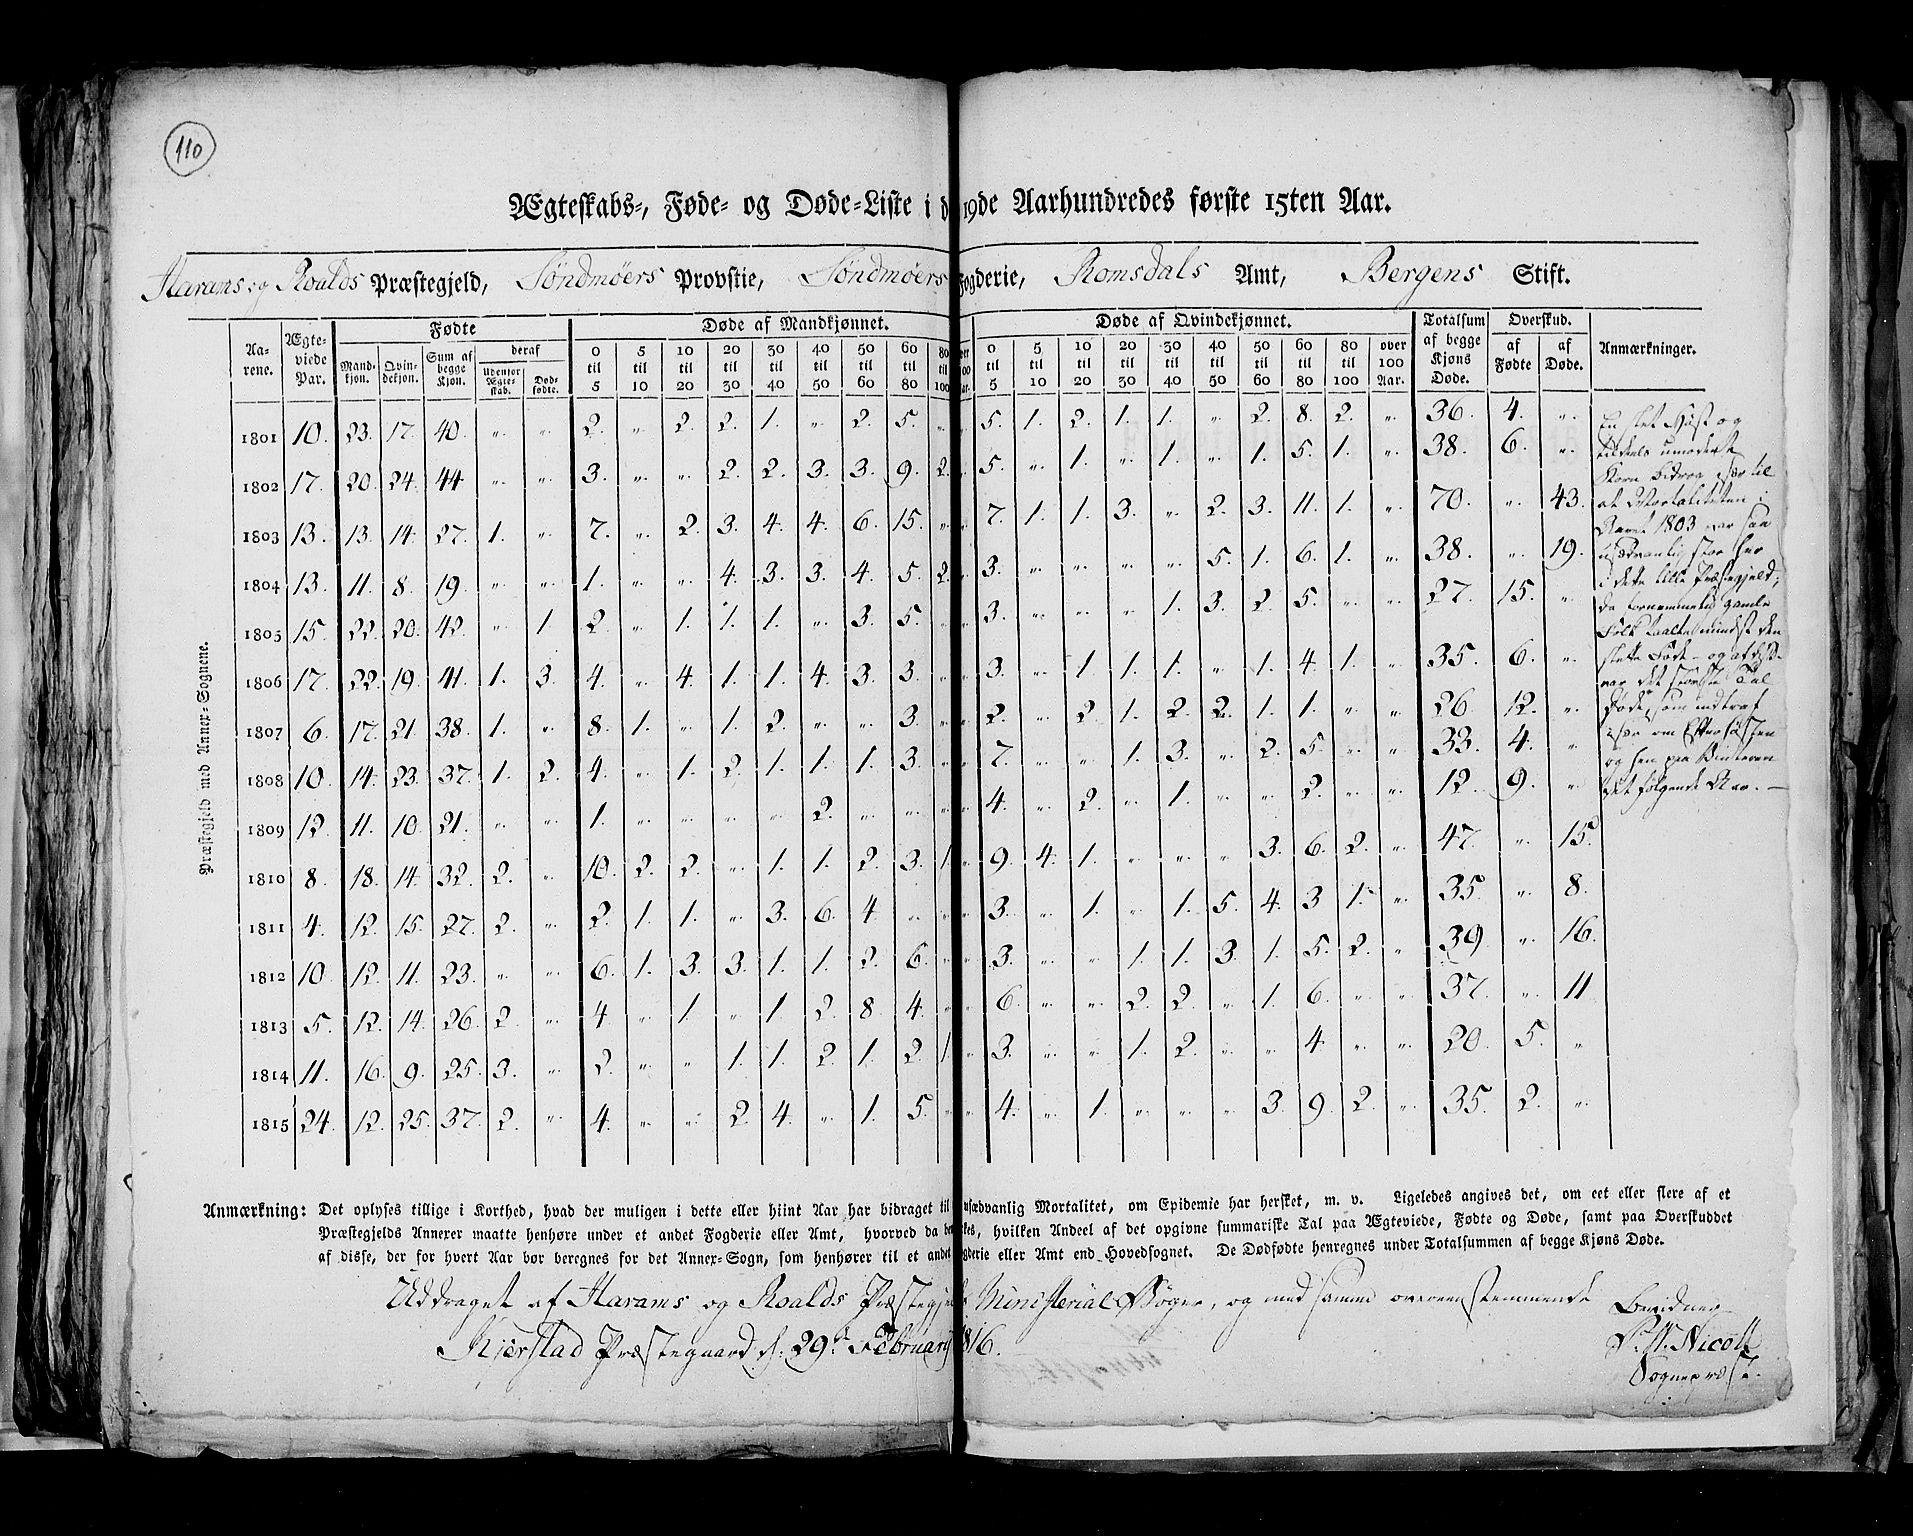 110
Ægteskabs-, Føde- og Døde-Liste i d 19de Aarhundredes første 15ten Aar.
Harams og Roalds Præstegjeld, Söndmöers Provstie, Söndmöers Fogderie, Romsdals Amt, Bergens Stift.
Præstegjeld med Annex-Sognene.
Aarene. Ægteviede Par. Fødte Døde af Mandkjønnet. Døde af Qvindekjønnet. Totalsum af begge Kjøns Døde. Overskud. Anmærkninger.
Mandkjøn. Qvindekjøn. Sum af begge Kjøn. deraf Udenfor Ægteskab. Dødfødte. 0 til 5 5 til 10 10 til 20 20 til 30 30 til 40 40 til 50 50 til 60 60 til 80 80 til 100 0 til 5 5 til 10 10 til 20 20 til 30 30 til 40 40 til 50 50 til 60 60 til 80 80 til 100 over 100 Aar. af Fødte af Døde.
1801 10. 23. 17. 40. „ „ 2. „ 2. 2. 1. „ 2. 5. „ „ 5. 1. 2. 1. 1. „ 2. 8. 2. „ 36. 4. „
1802 17. 20. 24. 44 „ „ 3. „ „ 2. 2. 3. 3. 9. 2. „ 5. „ 1. „ 1. „ 1. 5. 1. „ 38. 6. „
1803 13. 13. 14. 27. 1. „ 7. „ 2. 3. 4. 4. 6. 15. „ „ 7. 1. 1. 3. „ 2. 3. 11. 1. „ 70. „ 43.
1804 13. 11. 8. 19. „ „ 1. „ „ 4. 3. 3. 4. 5. 2. „ 3. „ „ „ „ 5. 1. 6. 1. „ 38. „ 19.
1805 15. 22. 20. 42. „ 1 2. „ 1. 1. 1. „ 3. 5. „ „ 3. „ „ „ 1. 3. 2. 5. „ „ 27. 15. „
1806 17. 22. 19. 41. 1. 3. 4. „ 4. 1. 1. 4. 3. 3. „ „ 3. „ 1. 1. 1. „ 1. 4. 1. „ 35. 6. „
1807 6. 17. 21. 38. 1. „ 8. 1. „ 1. 2. „ „ 3. „ „ 2. „ 2. 1. 2. 2. 1. 1. „ „ 26. 12. „
1808 10. 14. 23. 37. 1. 2. 4. „ 1. 2. 1. 1. 1. 3. „ „ 7. „ „ 1. 3. „ 2. 5. „ „ 33. 4. „
1809 12. 11. 10. 21. „ „ 1. „ „ „ „ 2. „ „ „ „ 4. „ 2. „ 1. „ „ 2. „ „ 12. 9. „
1810 8. 18. 14. 32. 2. „ 10. 2. 2. „ 1. 1. 2. 3. 1. „ 9. 4. 1. „ „ „ 3. 6. 2. „ 47. „ 15.
1811 4. 12. 15. 27. 2. „ 2. 1. 1. „ 3. 6. 4. „ „ „ 3. „ 1. „ 1. 5. 4. 3 1. „ 35. „ 8.
1812 10. 12. 11. 23. „ „ 6. 1. 3. 3. 1. 1. 2. 6. „ „ 3. „ „ 1. 1. 3. 1. 5. 2. „ 39 „ 16.
1813 5. 12. 14. 26. 2. „ 4. „ 1. „ 1. 2. 8. 4. „ „ 6. „ „ 2. 2. „ 1. 6. „ „ 37. „ 11
1814 11. 16. 9. 25. 3. „ 2. „ „ 1. 1. 2 1. 2. 1. „ 3. „ „ 1. 2. „ „ 4. „ „ 20. 5. „
1815 24. 12. 25. 37. 2. „ 4. „ „ 2 4. „ 1. 5. „ „ 4. „ 1. „ „ „ 3. 9. 2. „ 35. 2. „
En slet Høst og
tildeels umodent
Korn bidrog især til
at Mortaliteten i
Aaret 1803 var saa
usædvanlig stor her
i dette lille Præstegjeld;
da fornemmelig gamle
Folk taalte mindst den
slette Føde - og af dem
var det største Tal
Døde, som indtraf
især om Efterhøsten
og hen paa Vinteren
det følgende Aar. —
Anmærkning: Det oplyses tillige i Korthed, hvad der muligen i dette eller hiint Aar har bidraget til usædvanlig Mortalitet, om Epidemie har hersket, m. v. Ligeledes angives det, om eet eller flere af et
Præstegjelds Annexer maatte henhøre under et andet Fogderie eller Amt, hvorved da be kes, hvilken Andeel af det opgivne summariske Tal paa Ægteviede, Fødte og Døde, samt paa Overskuddet
af disse, der for hvert Aar bør beregnes for det Annex-Sogn, som henhører til et andet gderie eller Amt end Hovedsognet. De Dødfødte henregnes under Totalsummen af begge Kjøns Døde.
Uddraget af Harams og Roalds Præstegje Ministerial Bøger, og med samme overeenstemmende Bevidner
Kjerstad Præstegaard d: 29de Februarij 1816. Nicoll
Sogneprest.